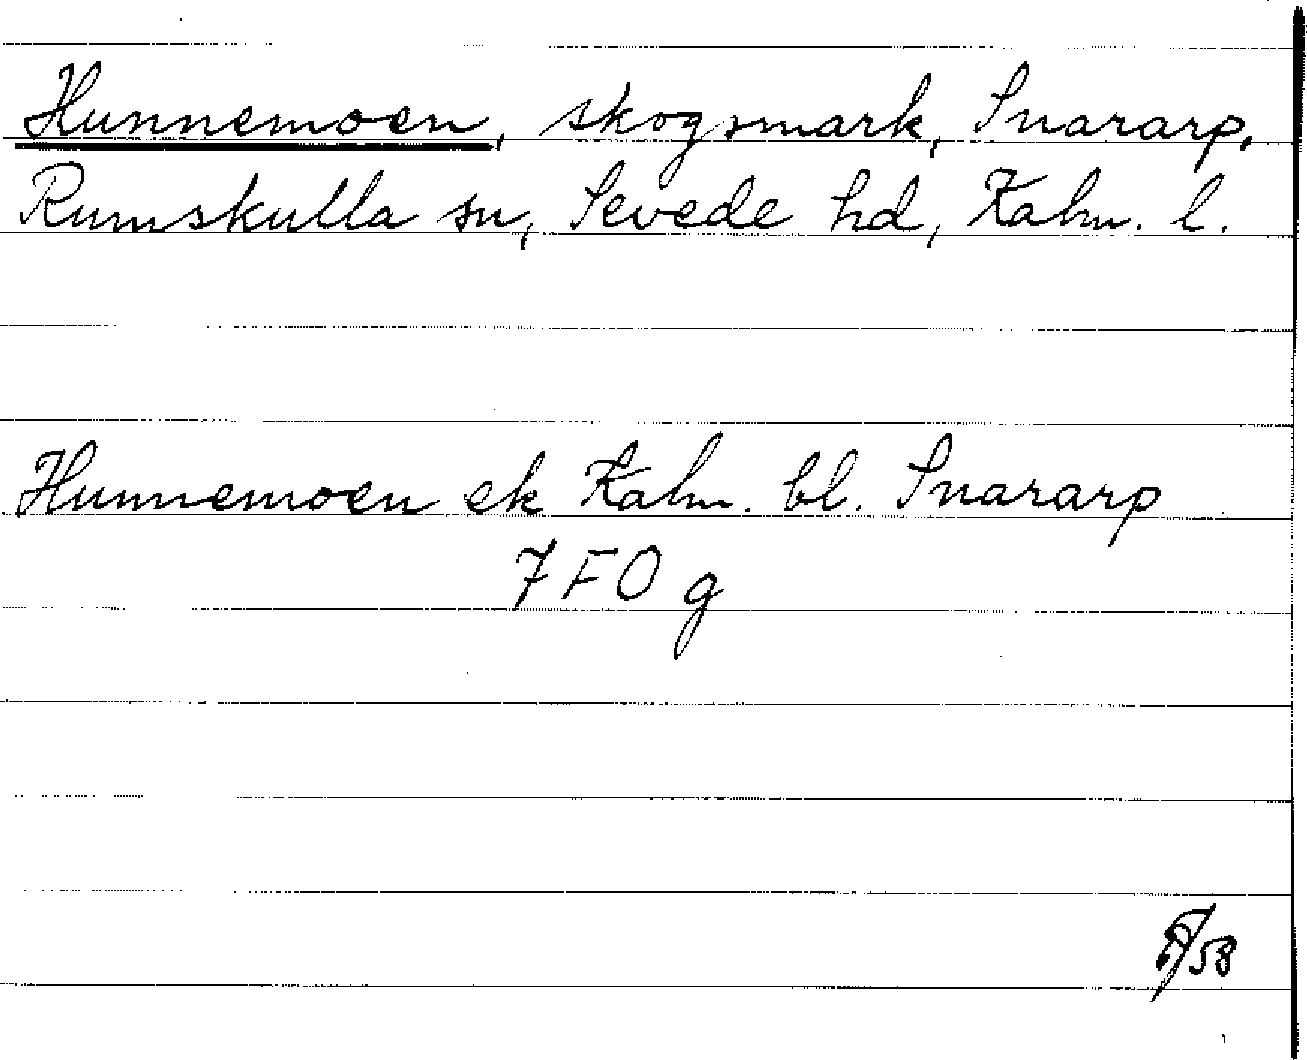 Hunnemoen, skogsmark, Snararp,
Rumskulla sn, Sevede hd, Kalm. l.
Hunnemoen ek Kalm. bl. Snararp
7 F 0 g
/58